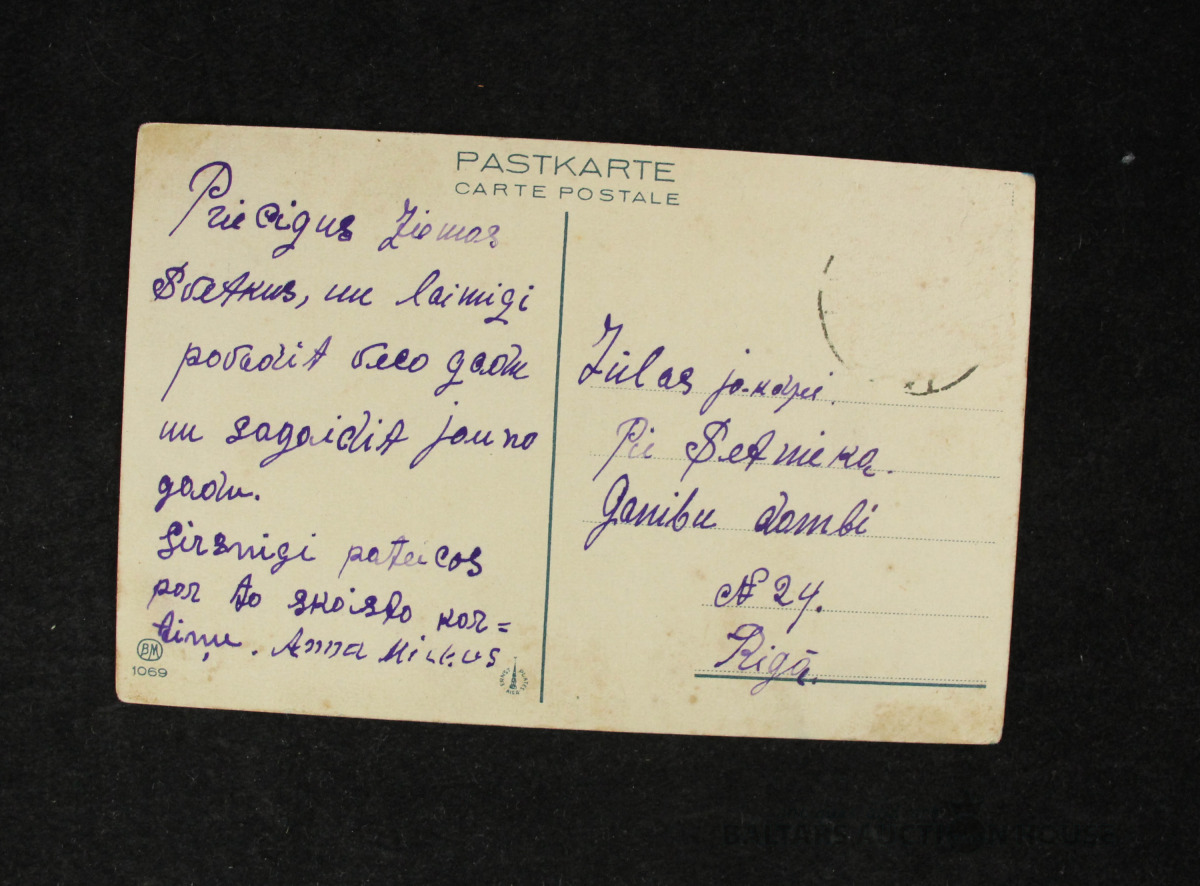 PASTKARTE
CARTE POSTALE
Priecigus Ziemas
Svetkus, un laimigi
pavadit veco gadu
un sagaidit jauno
gadu.
Sirsnigi pateicos
par to skaisto kar=
tiņu. Anna
BM
1069
Zūlas
Pie Setnieka.
Ganibu dambi
№ 24.
Rigā.
BALTARS AUCTION HOUSE